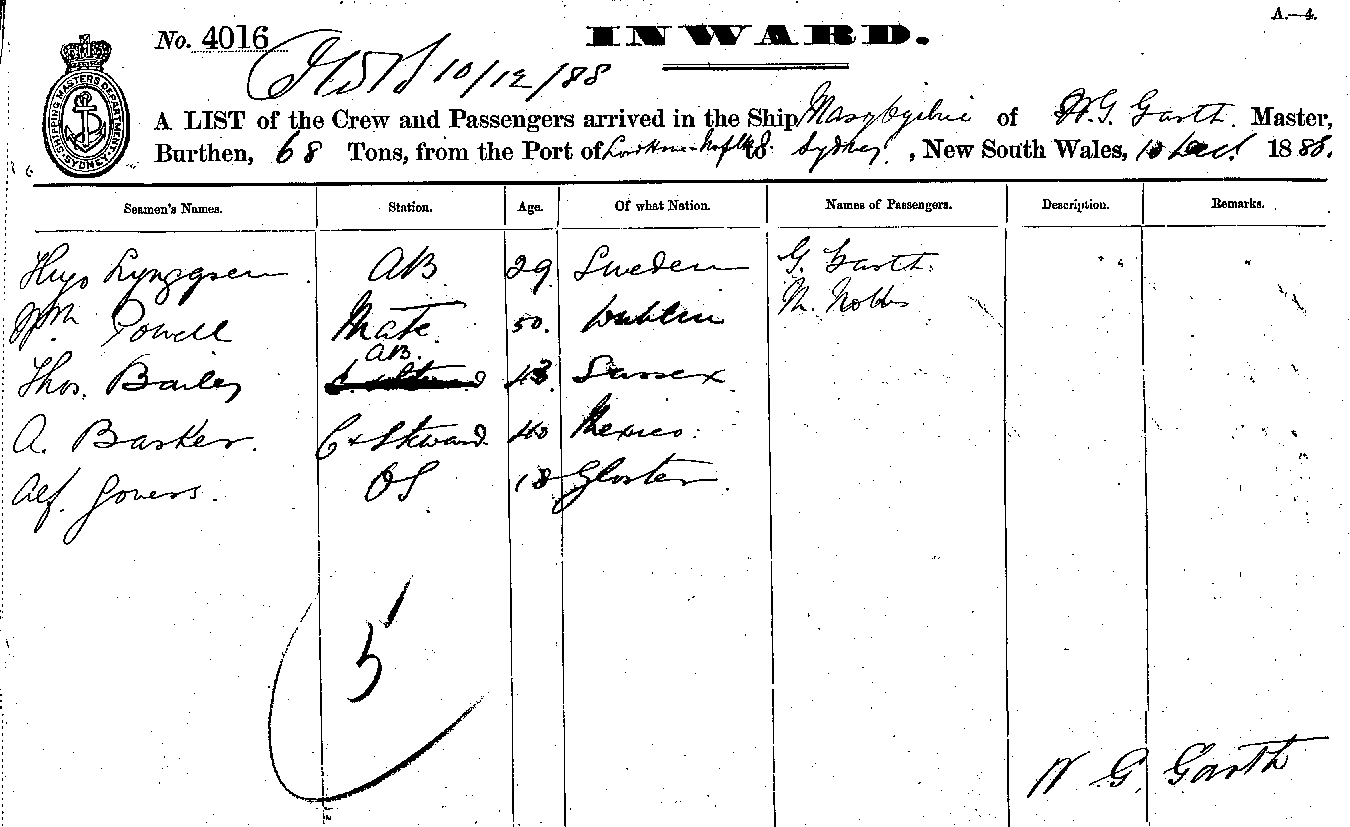 A.—4.
No. 4016
INWARD.
10/12/88
SHIPPING MASTERS DEPARTMENT SYDNEY
A LIST of the Crew and Passengers arrived in the Ship of W. G. Garth. Master,
Burthen, 68 Tons, from the Port of to Sydney, New South Wales, 10 Dec 1888.
Seamen's Names. Station. Age. Of what Nation. Names of Passengers. Description. Remarks.
AB 29 Sweden G. Garth.
Wm Powell Mate. 50. Dublin M. Nobbs
AB.
Thos. Bailey 43. Sussex.
A. Barker. C & Steward. 40 Mexico.
Alf. Govers. OS 18 Gloster.
5
W. G. Garth